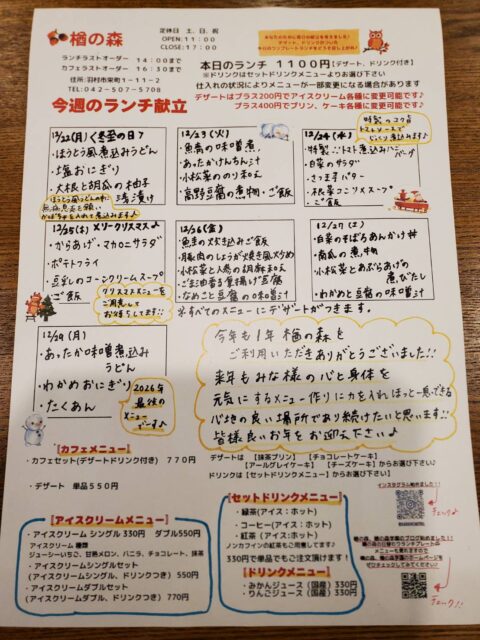 楢の森
定休日 土、日、祝
OPEN:11:00
CLOSE:17:00
ランチラストオーダー 14:00まで
カフェラストオーダー 16:30まで
住所:羽村市栄町1-11-2
TEL:042-507-5708
本日のランチ 1100円(デザート、ドリンク付き)
※ドリンクはセットドリンクメニューよりお選び下さい
仕入れの状況によりメニューが一部変更になる場合があります
デザートはプラス200円でアイスクリーム各種に変更可能です♪
プラス400円でプリン、ケーキ各種に変更可能です♪
今週のランチ献立
12/22(月)<冬至の日>
・ほうとう風煮込みうどん
・塩おにぎり
・大根と胡瓜の柚子
漬け
12/23(火)
・魚の味噌煮
・あったかけんちん汁
・小松菜ののり和え
・高野豆腐の煮物・ご飯
12/24(水)
特製のコク旨
トマトソースで
じっくり煮込みます♪
・特製トマト煮込みハンバーグ
・白菜のサラダ
・さつまバター
・根菜コンソメスープ
・ご飯
12/25(木)メリークリスマス♪
・からあげ・マカロニサラダ
・ポテトフライ
・豆乳のコーンクリームスープ
・ご飯
クリスマスメニューを
ご用意して
お待ちしてます!!
12/26(金)
・魚介の炊き込みご飯
・豚肉のしょうが焼き風炒め
・小松菜と人参の胡麻和え
・ごま油香る里揚げ豆腐
・なめこと豆腐の味噌汁
12/27(土)
・白菜のそぼろあんかけ丼
・南瓜の煮物
・小松菜とあぶらあげの
煮びたし
・わかめと豆腐の味噌汁
※すべてのメニューにデザートがつきます。
12/29(月)
・あったか味噌煮込み
うどん
・わかめおにぎり
・たくあん
今年も1年 楢の森を
ご利用いただきありがとうございました!!
来年もみな様の心と身体を
元気にするメニュー作りに力を入れ ほっと一息できる
心地の良い場所であり続けたいと思います!!
皆様良いお年をお迎え下さい♪
【カフェメニュー】
・カフェセット(デザートドリンク付き) 770円
・デザート 単品550円
デザートは 【抹茶プリン】 【チョコレートケーキ】
【アールグレイケーキ】 【チーズケーキ】からお選び下さい♪
ドリンクは【セットドリンクメニュー】からお選び下さい♪
【アイスクリームメニュー】
・アイスクリーム シングル330円 ダブル550円
アイスクリーム 種類
ジューシーいちご、甘熟メロン、バニラ、チョコレート、抹茶
・アイスクリームシングルセット
(アイスクリームシングル、ドリンクつき) 550円
・アイスクリームダブルセット
(アイスクリームダブル、ドリンクつき) 770円
【セットドリンクメニュー】
・緑茶(アイス:ホット)
・コーヒー(アイス:ホット)
・紅茶 (アイス:ホット)
ノンカフェインの紅茶もご用意してます♪
330円で単品でもご注文頂けます!
【ドリンクメニュー】
・みかんジュース(国産)330円
・りんごジュース(国産)330円
インスタグラム始めました!!
チェック♪
チェック!!